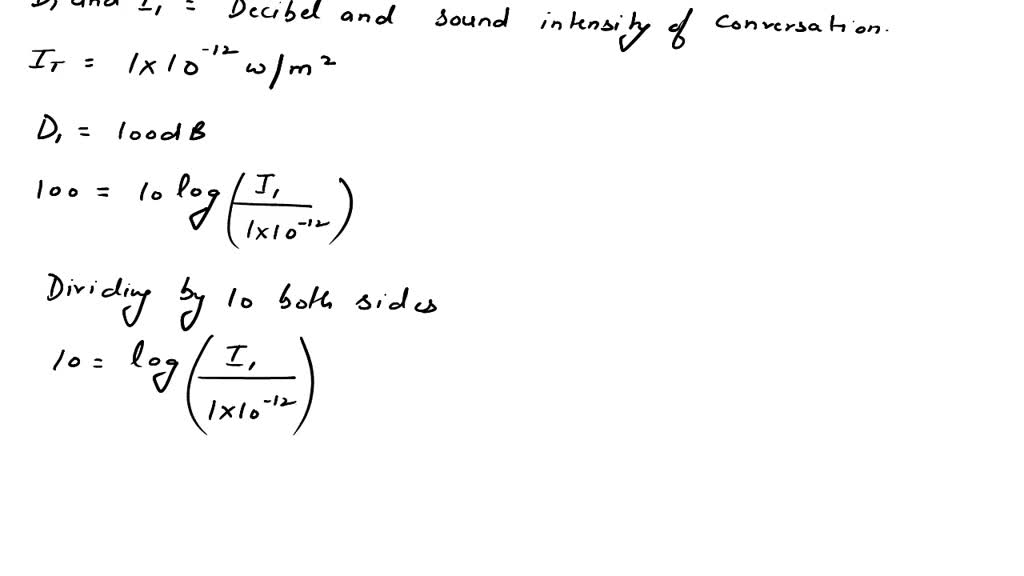 D₁ and I₁ = Decibel and sound intensity of conversation.
I_T = 1×10⁻¹² w/m²
D₁ = 100dB
100 = 10 log(I₁/1×10⁻¹²)
Dividing by 10 both sides
10 = log(I₁/1×10⁻¹²)